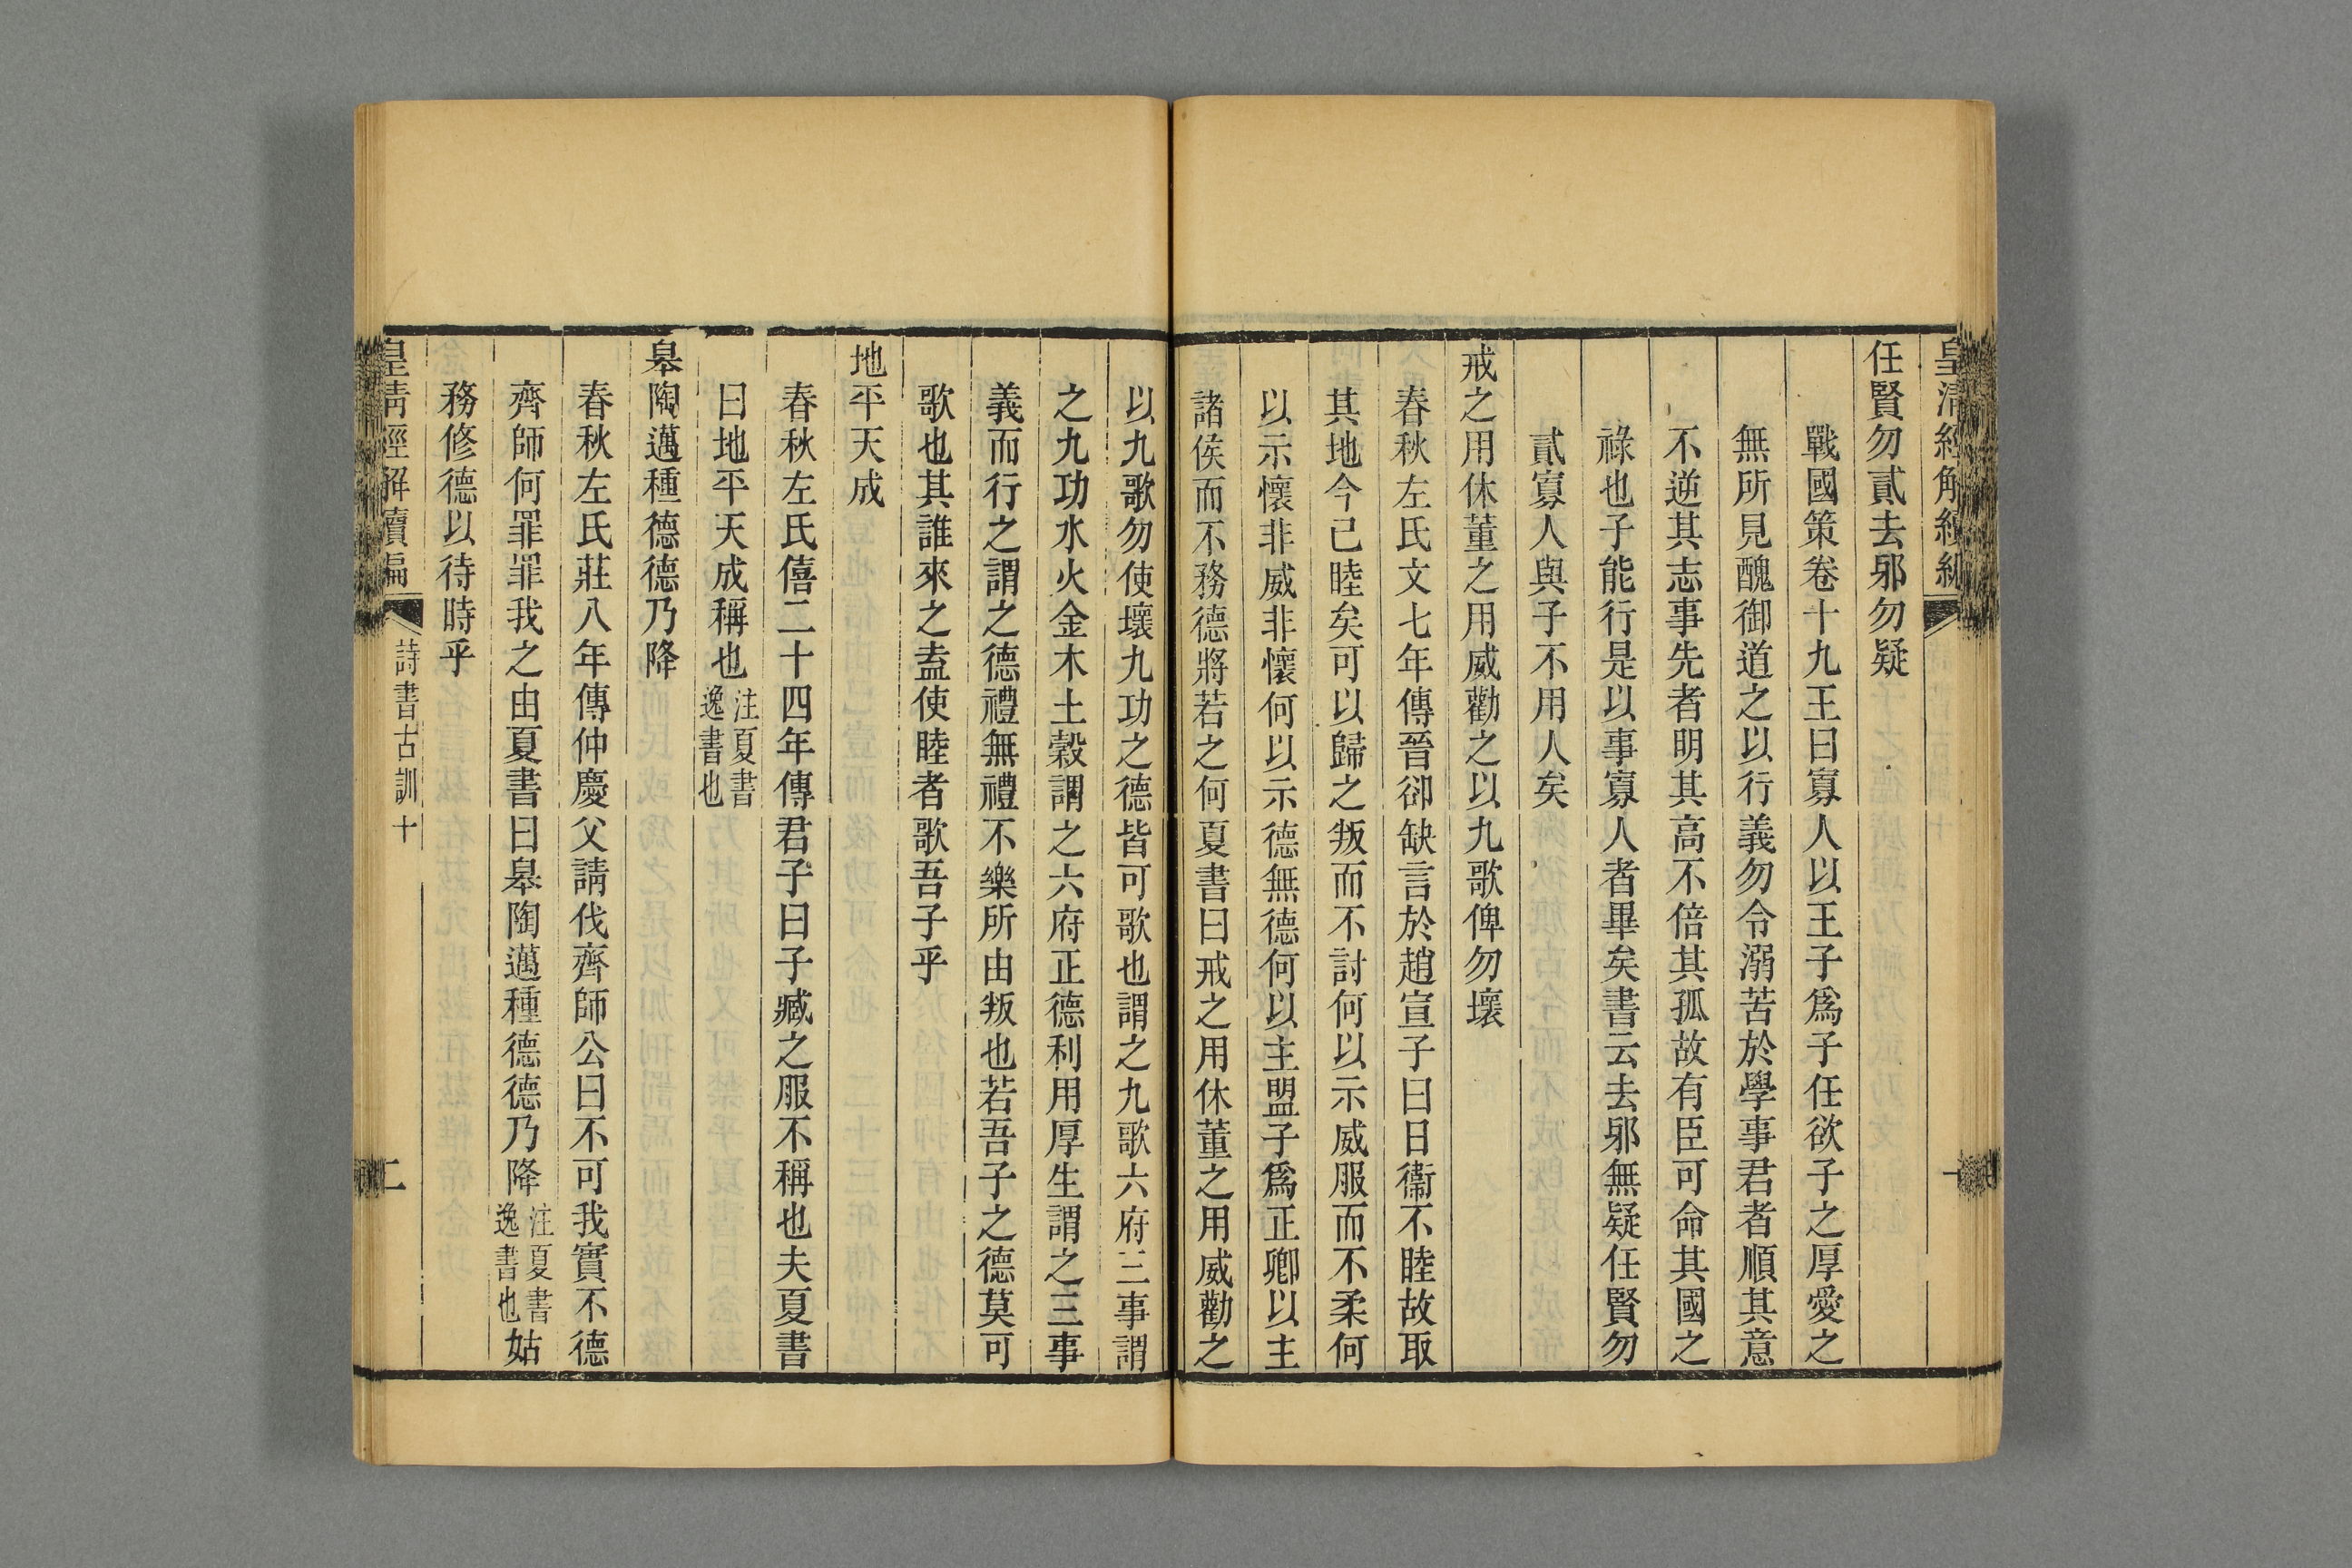 皇清經解續編
任賢勿貳去邪勿疑
戰國策卷十九王曰寡人以王子爲子任欲子之厚愛之
無所見醜御道之以行義勿令溺苦於學事君者順其意
不逆其志事先者明其高不倍其孤故有臣可命其國之
祿也子能行是以事寡人者畢矣書云去邪無疑任賢勿
貳寡人與子不用人矣
戒之用休董之用威勸之以九歌俾勿壞
春秋左氏文七年傳晉卻缺言於趙宣子曰日衞不睦故取
其地今已睦矣可以歸之叛而不討何以示威服而不柔何
以示懷非威非懷何以示德無德何以主盟子爲正卿以主
諸侯而不務德將若之何夏書曰戒之用休董之用威勸之
以九歌勿使壞九功之德皆可歌也謂之九歌六府三事謂
之九功水火金木土穀謂之六府正德利用厚生謂之三事
義而行之謂之德禮無禮不樂所由叛也若吾子之德莫可
歌也其誰來之盍使睦者歌吾子乎
地平天成
春秋左氏僖二十四年傳君子曰子臧之服不稱也夫夏書
曰地平天成稱也注夏書逸書也
皋陶邁種德德乃降
春秋左氏莊八年傳仲慶父請伐齊師公曰不可我實不德
齊師何罪罪我之由夏書曰皋陶邁種德德乃降注夏書逸書也姑
務修德以待時乎
皇清經解續編 詩書古訓十 二